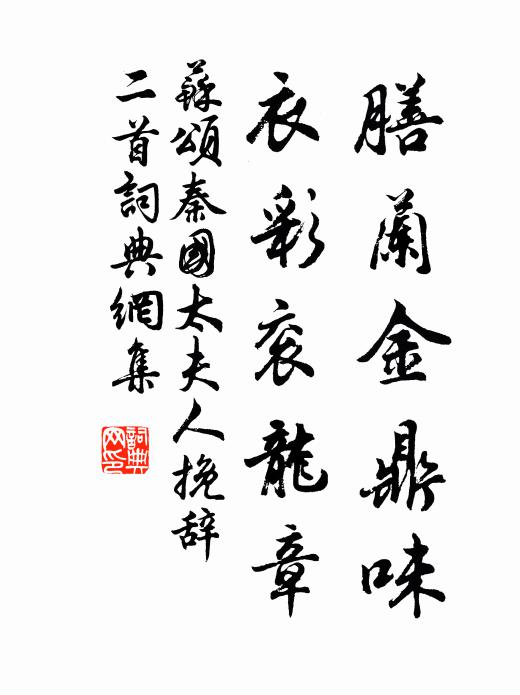 膳蘭金鼎味
衣彩衮龍章
蘇頌秦國太夫人挽辞
二首詞典網集
詞典
网印